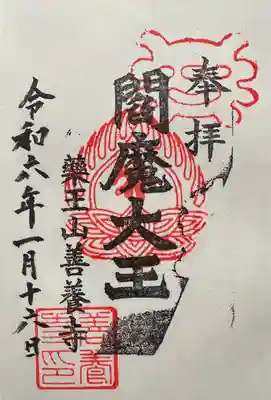 奉拝
閻魔大王
薬王山善養寺
令和六年一月十六日
善養寺印